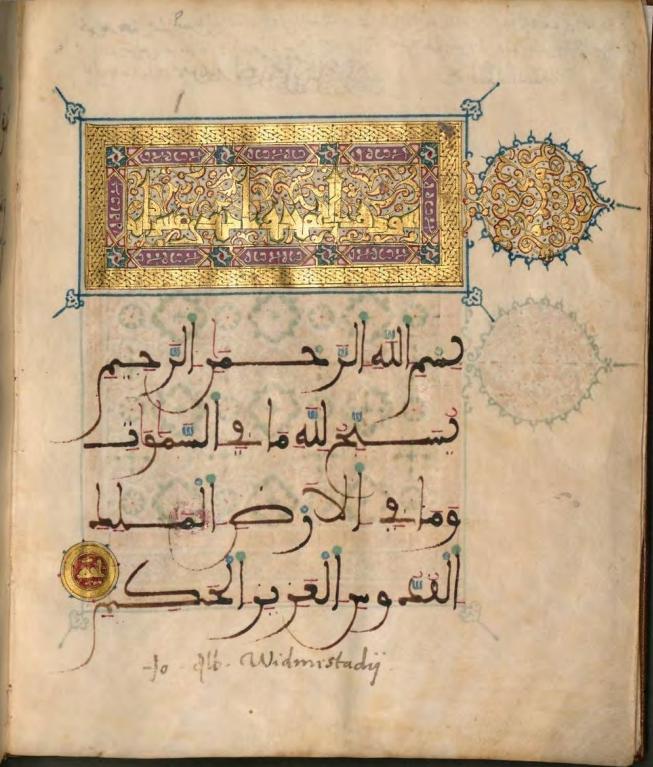 سورة الجمعة
بِسْمِ اللَّهِ الرَّحْمَنِ الرَّحِيمِ
يُسَبِّحُ لِلَّهِ مَا فِي السَّمَٰوَٰتِ
وَمَا فِي الْأَرْضِ الْمَلِكِ
الْقُدُّوسِ الْعَزِيزِ الْحَكِيمِ
Jo. Alb. Widmistadij.